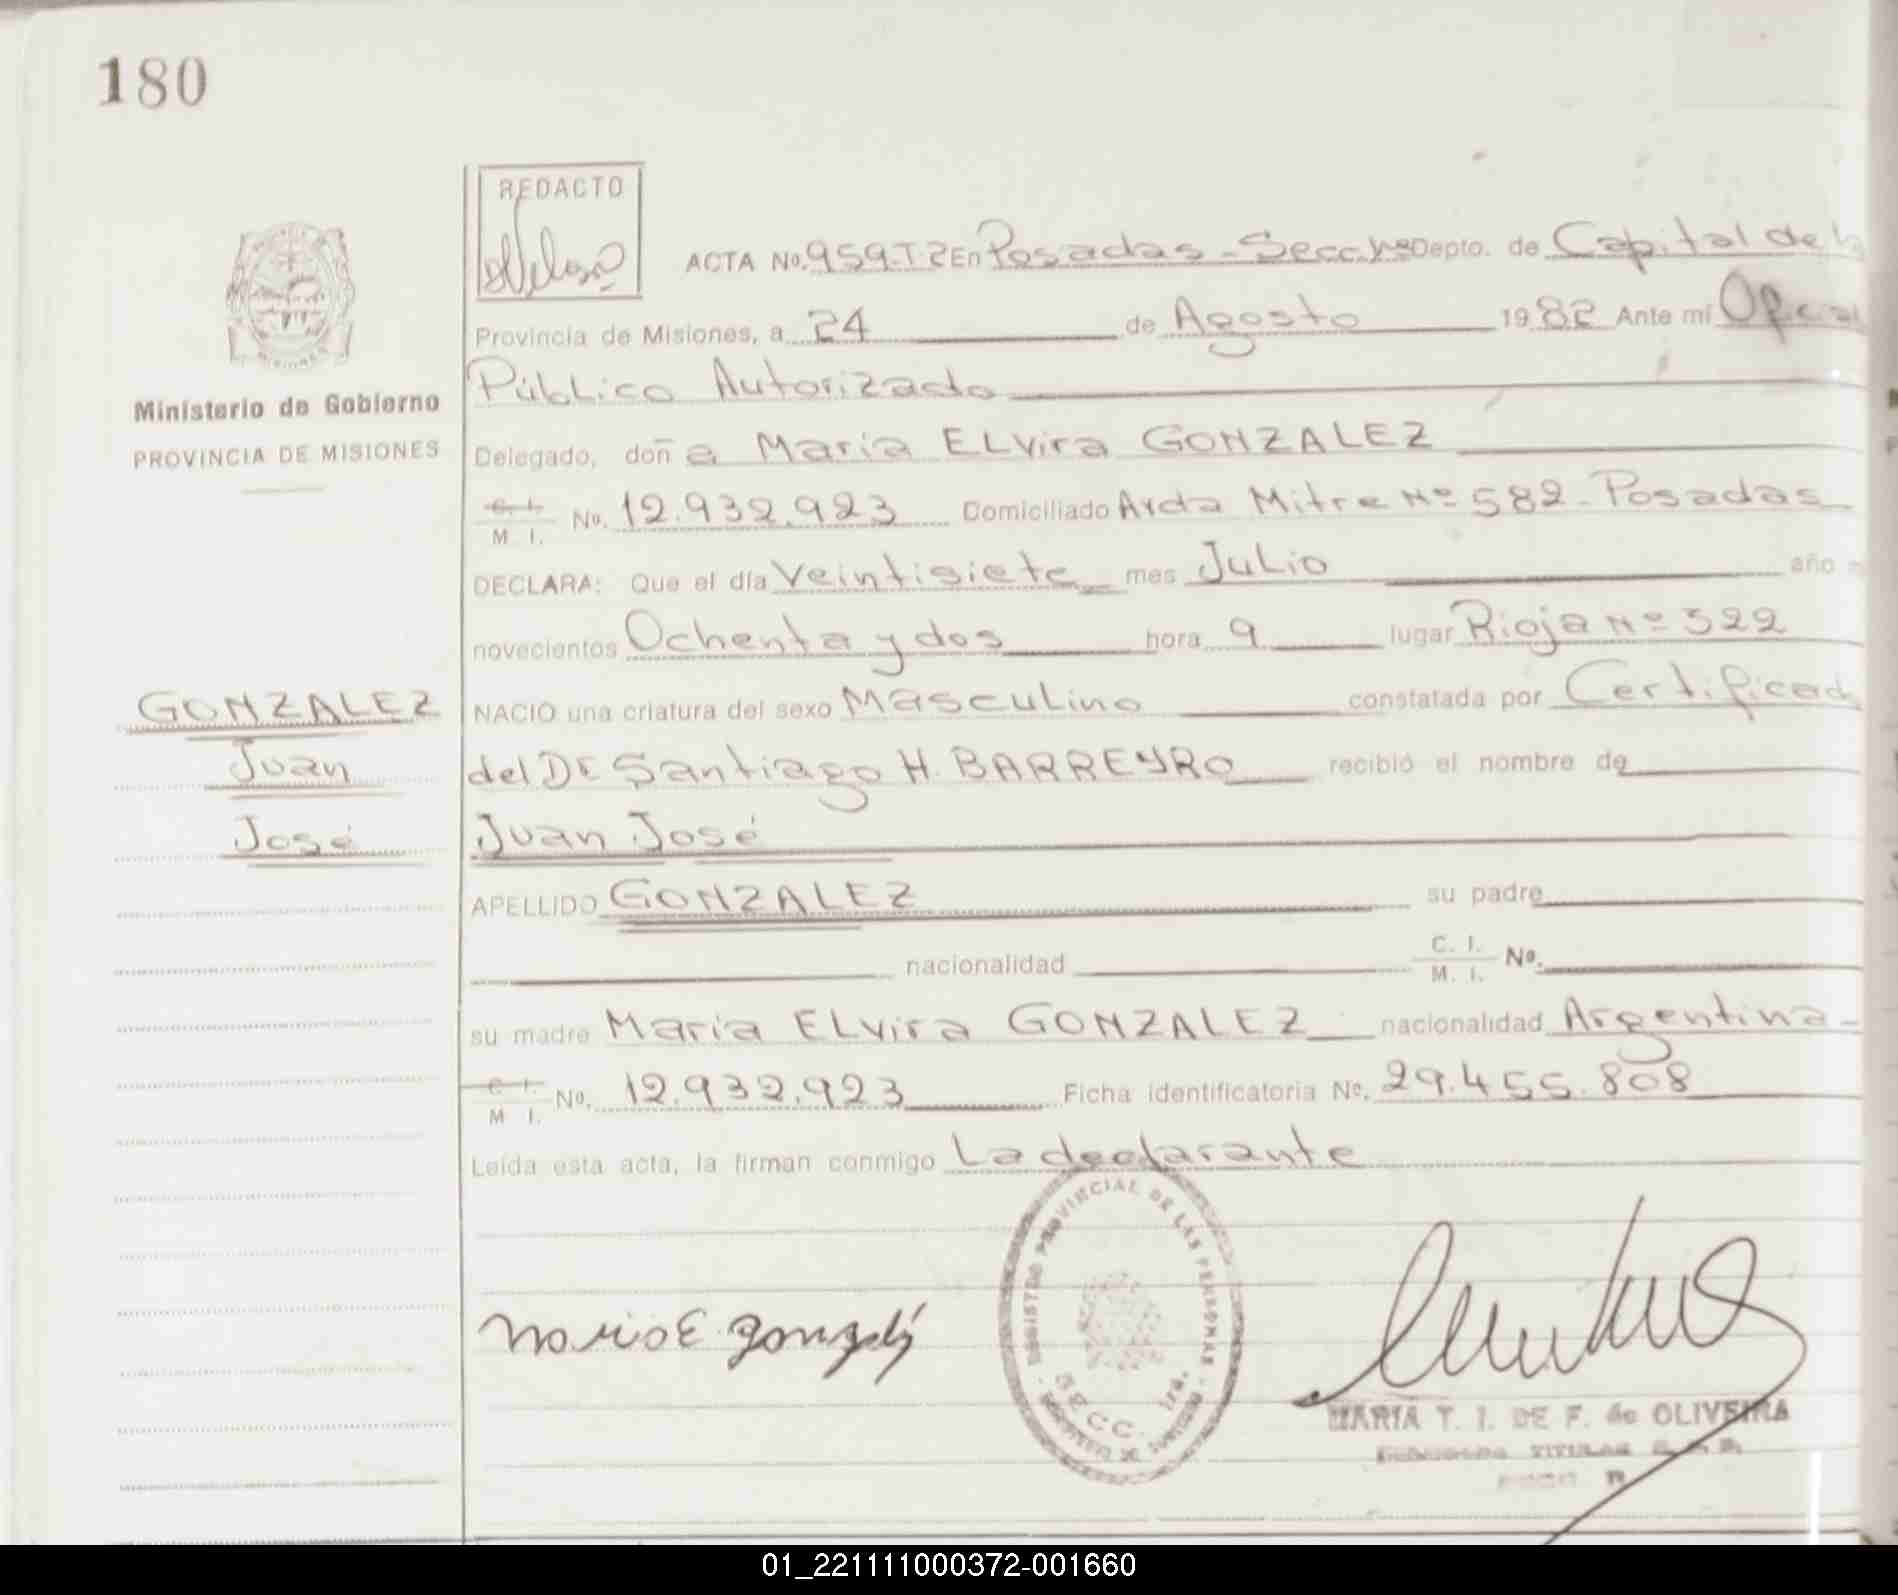 180
REDACTO
ACTA No. 959-T-2 En Posadas - Secc. 1ra Depto. de Capital de la
Provincia de Misiones, a 24 de Agosto 1982 Ante mí Oficial
Público Autorizado
Ministerio de Gobierno
PROVINCIA DE MISIONES
Delegado, doña María ELvira GONZALEZ
C. I. / M. I. No. 12.932.923 Domiciliado Avda Mitre Nº 582 - Posadas
DECLARA: Que el día Veintisiete mes Julio año
novecientos Ochenta y dos hora 9 lugar Rioja Nº 322
GONZALEZ
NACIO una criatura del sexo Masculino constatada por Certificad
Juan
del Dr Santiago H. BARREYRO recibió el nombre de
José
Juan José
APELLIDO GONZALEZ su padre
nacionalidad C. I. / M. I. No.
su madre María ELvira GONZALEZ nacionalidad Argentina
C. I. / M. I. No. 12.932.923 Ficha identificatoria No. 29.455.808
Leída esta acta, la firman conmigo La declarante
REGISTRO PROVINCIAL DE LAS PERSONAS
SECC. 1ra.
Maria E. Gonzalez
MARIA T. I. DE F. de OLIVEIRA
01_221111000372-001660